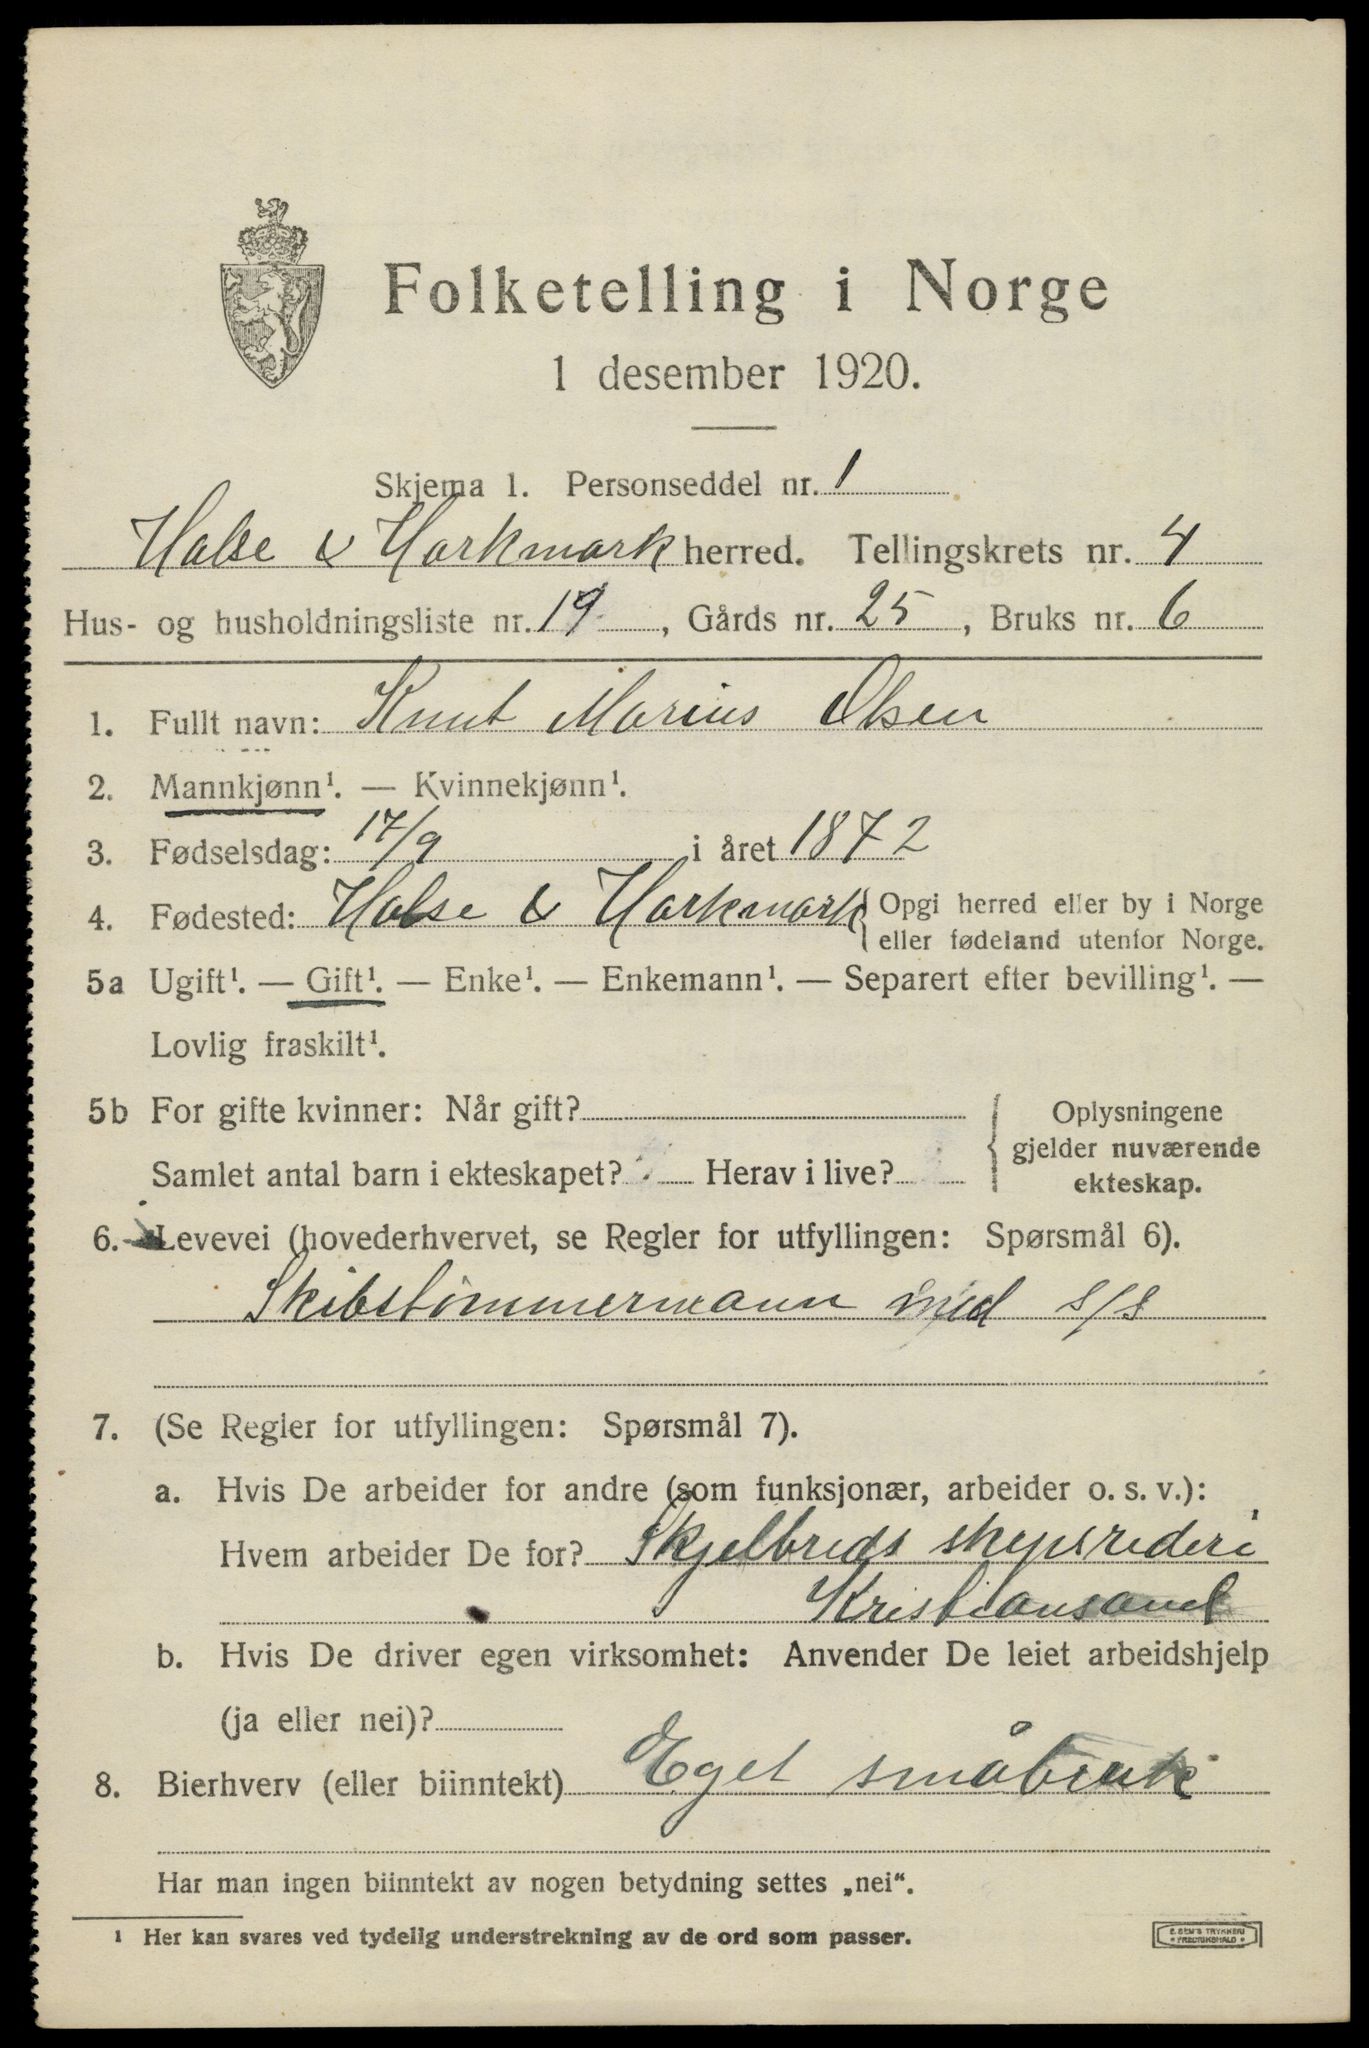 Folketelling i Norge
1 desember 1920.
Skjema 1. Personseddel nr. 1
Halse & Harkmark herred. Tellingskrets nr. 4
Hus- og husholdningsliste nr. 19, Gårds nr. 25, Bruks nr. 6
1. Fullt navn: Knut Marius Olsen
2. Mannkjønn¹. — Kvinnekjønn¹.
3. Fødselsdag: 17/9 i året 1872
4. Fødested: Halse & Harkmark { Opgi herred eller by i Norge
eller fødeland utenfor Norge.
5a Ugift¹. — Gift¹. — Enke¹. — Enkemann¹. — Separert efter bevilling¹. —
Lovlig fraskilt¹.
5b For gifte kvinner: Når gift?
Samlet antal barn i ekteskapet? Herav i live?
Oplysningene
gjelder nuværende
ekteskap.
6. Levevei (hovederhvervet, se Regler for utfyllingen: Spørsmål 6).
Skibstømmermann med s/s
7. (Se Regler for utfyllingen: Spørsmål 7).
a. Hvis De arbeider for andre (som funksjonær, arbeider o. s. v.):
Hvem arbeider De for? Skjelbreds skepsrederi
Kristiansand
b. Hvis De driver egen virksomhet: Anvender De leiet arbeidshjelp
(ja eller nei)?
8. Bierhverv (eller biinntekt) Eget småbruk
Har man ingen biinntekt av nogen betydning settes „nei“.
¹ Her kan svares ved tydelig understrekning av de ord som passer.
E. SEM'S TRYKKERI
FREDRIKSHALD